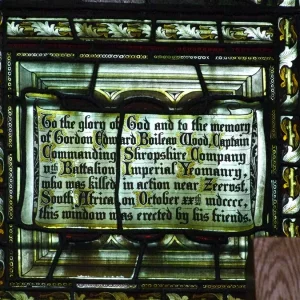 To the glory of God and to the memory
of Gordon Edward Boileau Wood, Captain
Commanding Shropshire Company
Vth Battalion Imperial Yeomanry,
who was killed in action near Zeerust,
South Africa, on October xxth mdcccc,
this window was erected by his friends.